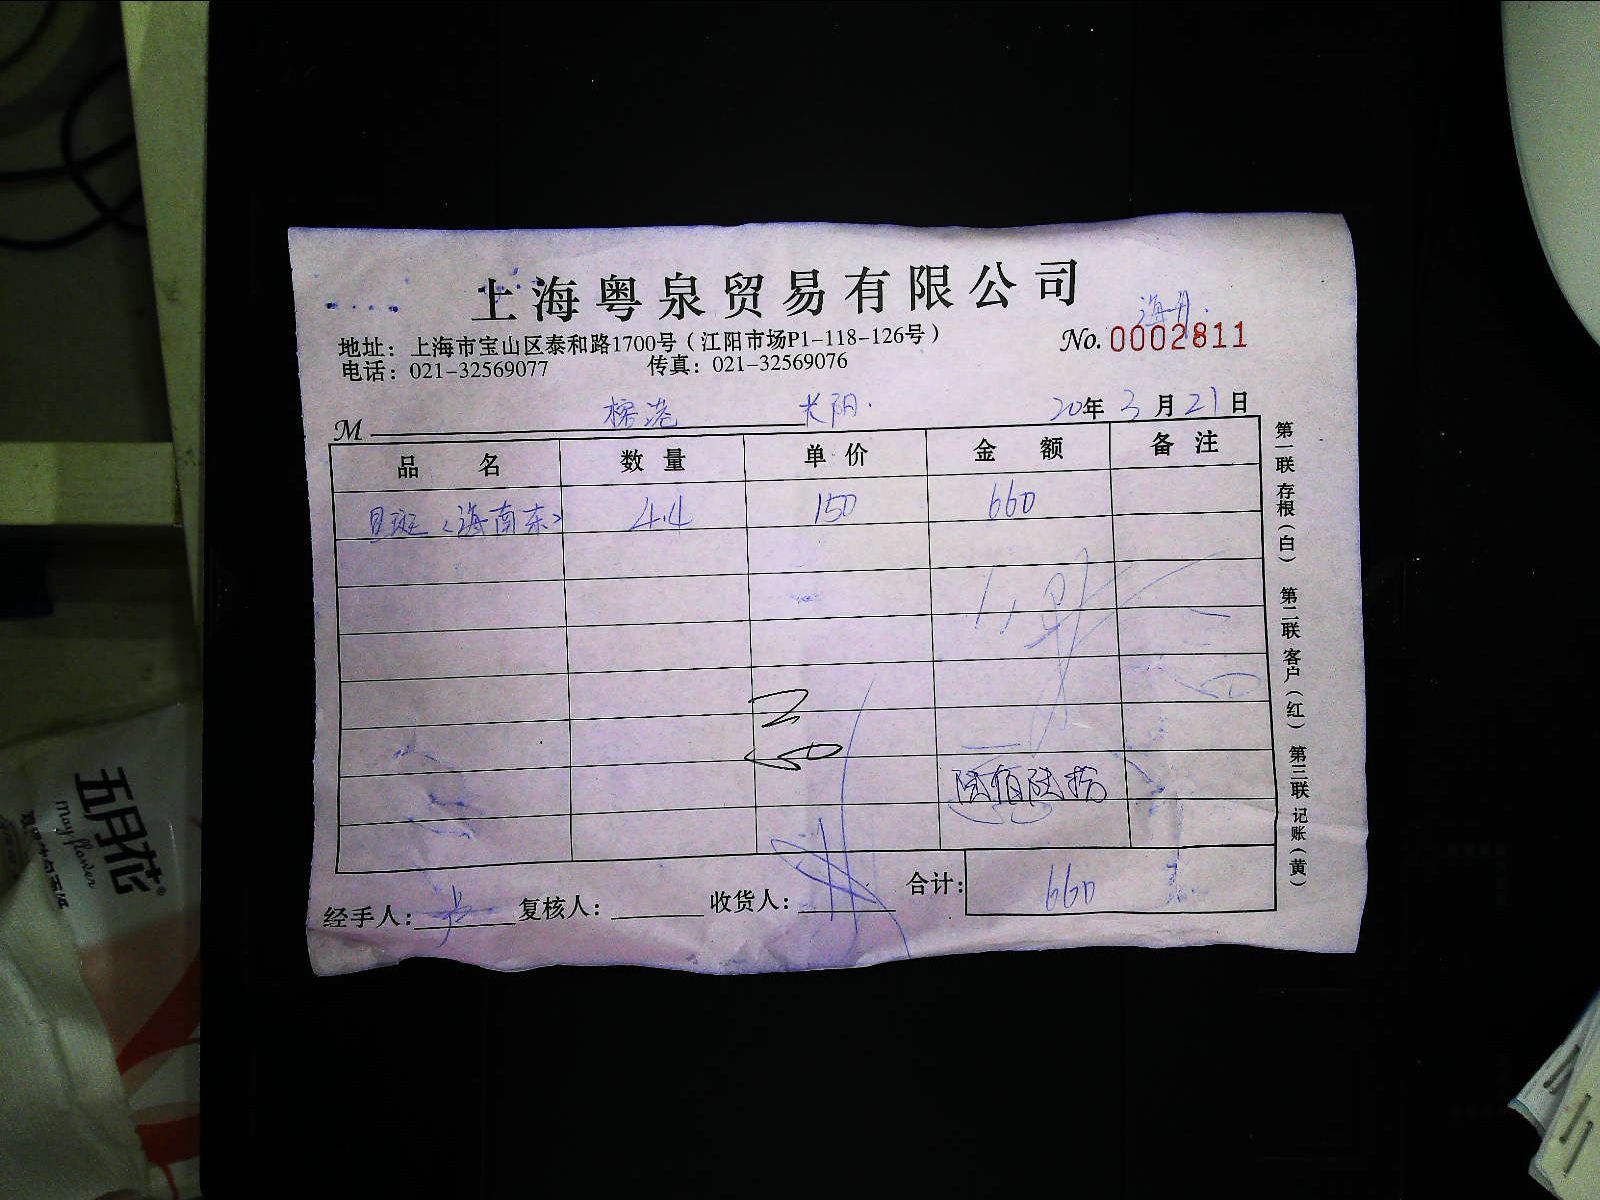 上海粤泉贸易有限公司
地址：上海市宝山区泰和路1700号（江阳市场P1-118-126号）
No. 0002811
电话：021-32569077 传真：021-32569076
M 榕港 长阳. 20年3月21日
品名 数量 单价 金额 备注
旦斑〈海南东〉 4.4 150 660
陆佰陆拾
合计： 660
经手人： 复核人： 收货人：
第一联 存根（白） 第二联 客户（红） 第三联 记账（黄）
五月花
may flower